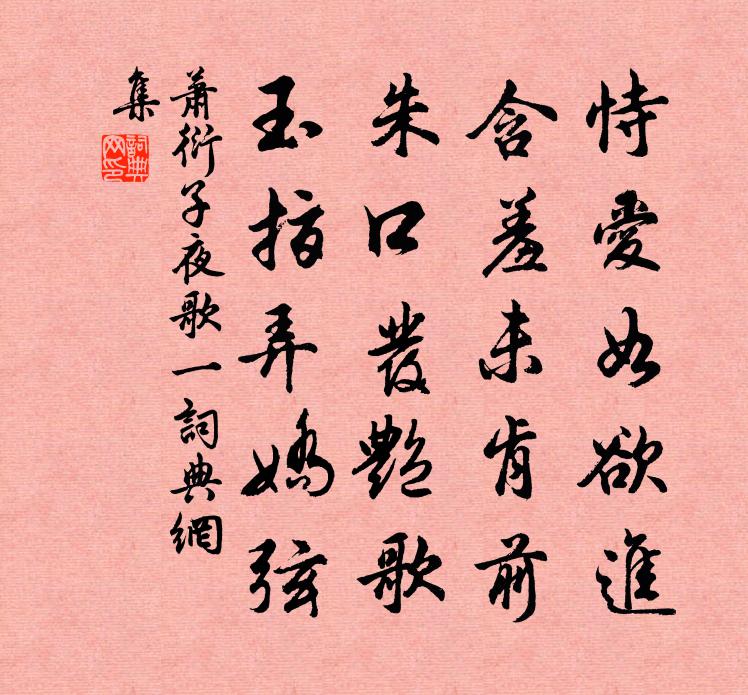 恃愛如欲進
含羞未肯前
朱口發艷歌
玉指弄嬌弦
蕭衍子夜歌一詞典網
集
詞典
网印